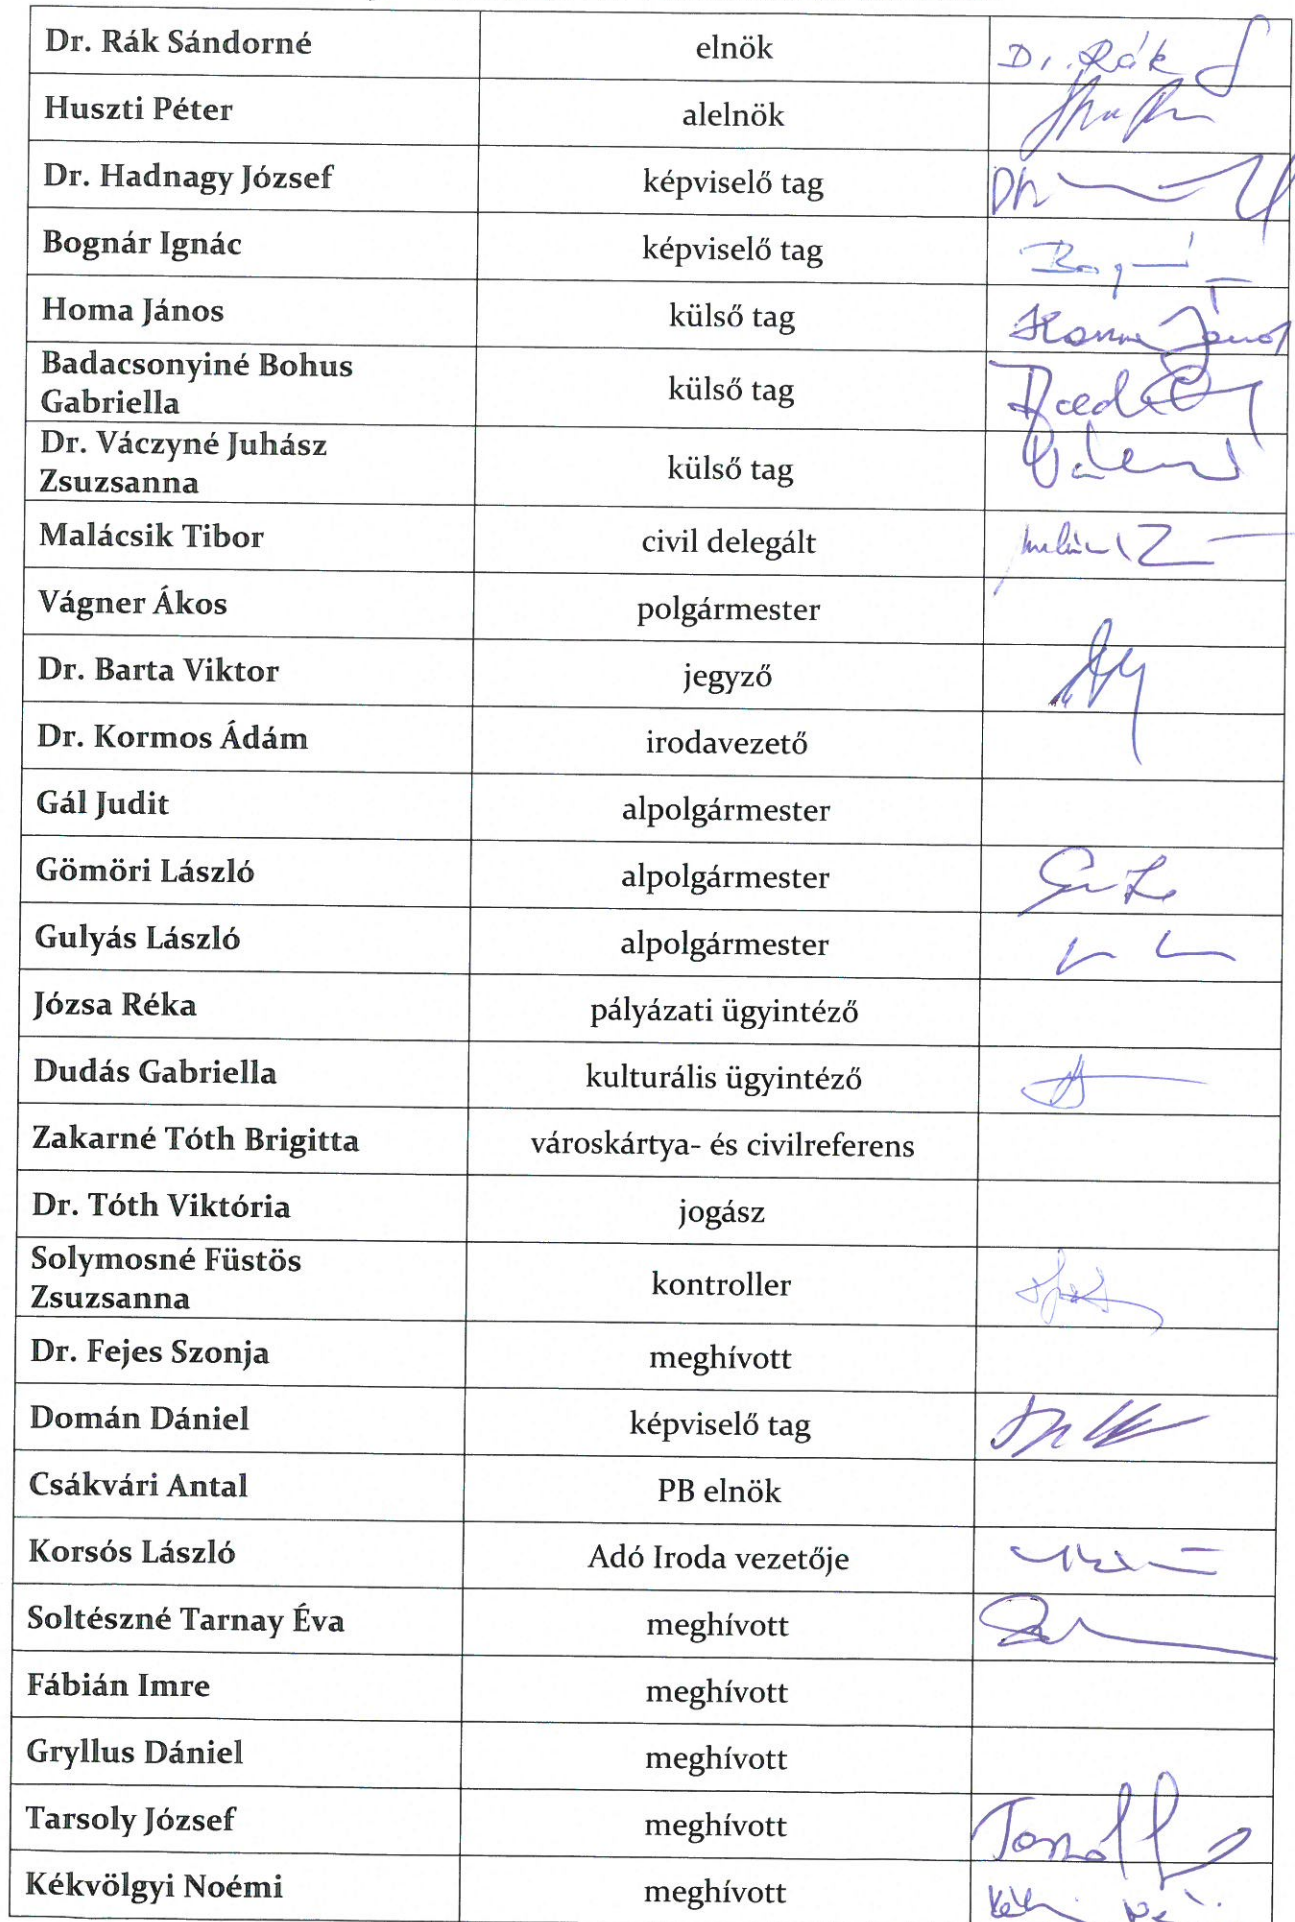 Dr. Rák Sándorné elnök Dr. Rák S
Huszti Péter alelnök
Dr. Hadnagy József képviselő tag
Bognár Ignác képviselő tag
Homa János külső tag Homa János
Badacsonyiné Bohus
Gabriella külső tag
Dr. Váczyné Juhász
Zsuzsanna külső tag
Malácsik Tibor civil delegált
Vágner Ákos polgármester
Dr. Barta Viktor jegyző
Dr. Kormos Ádám irodavezető
Gál Judit alpolgármester
Gömöri László alpolgármester
Gulyás László alpolgármester
Józsa Réka pályázati ügyintéző
Dudás Gabriella kulturális ügyintéző
Zakarné Tóth Brigitta városkártya- és civilreferens
Dr. Tóth Viktória jogász
Solymosné Füstös
Zsuzsanna kontroller
Dr. Fejes Szonja meghívott
Domán Dániel képviselő tag
Csákvári Antal PB elnök
Korsós László Adó Iroda vezetője
Soltészné Tarnay Éva meghívott
Fábián Imre meghívott
Gryllus Dániel meghívott
Tarsoly József meghívott
Kékvölgyi Noémi meghívott